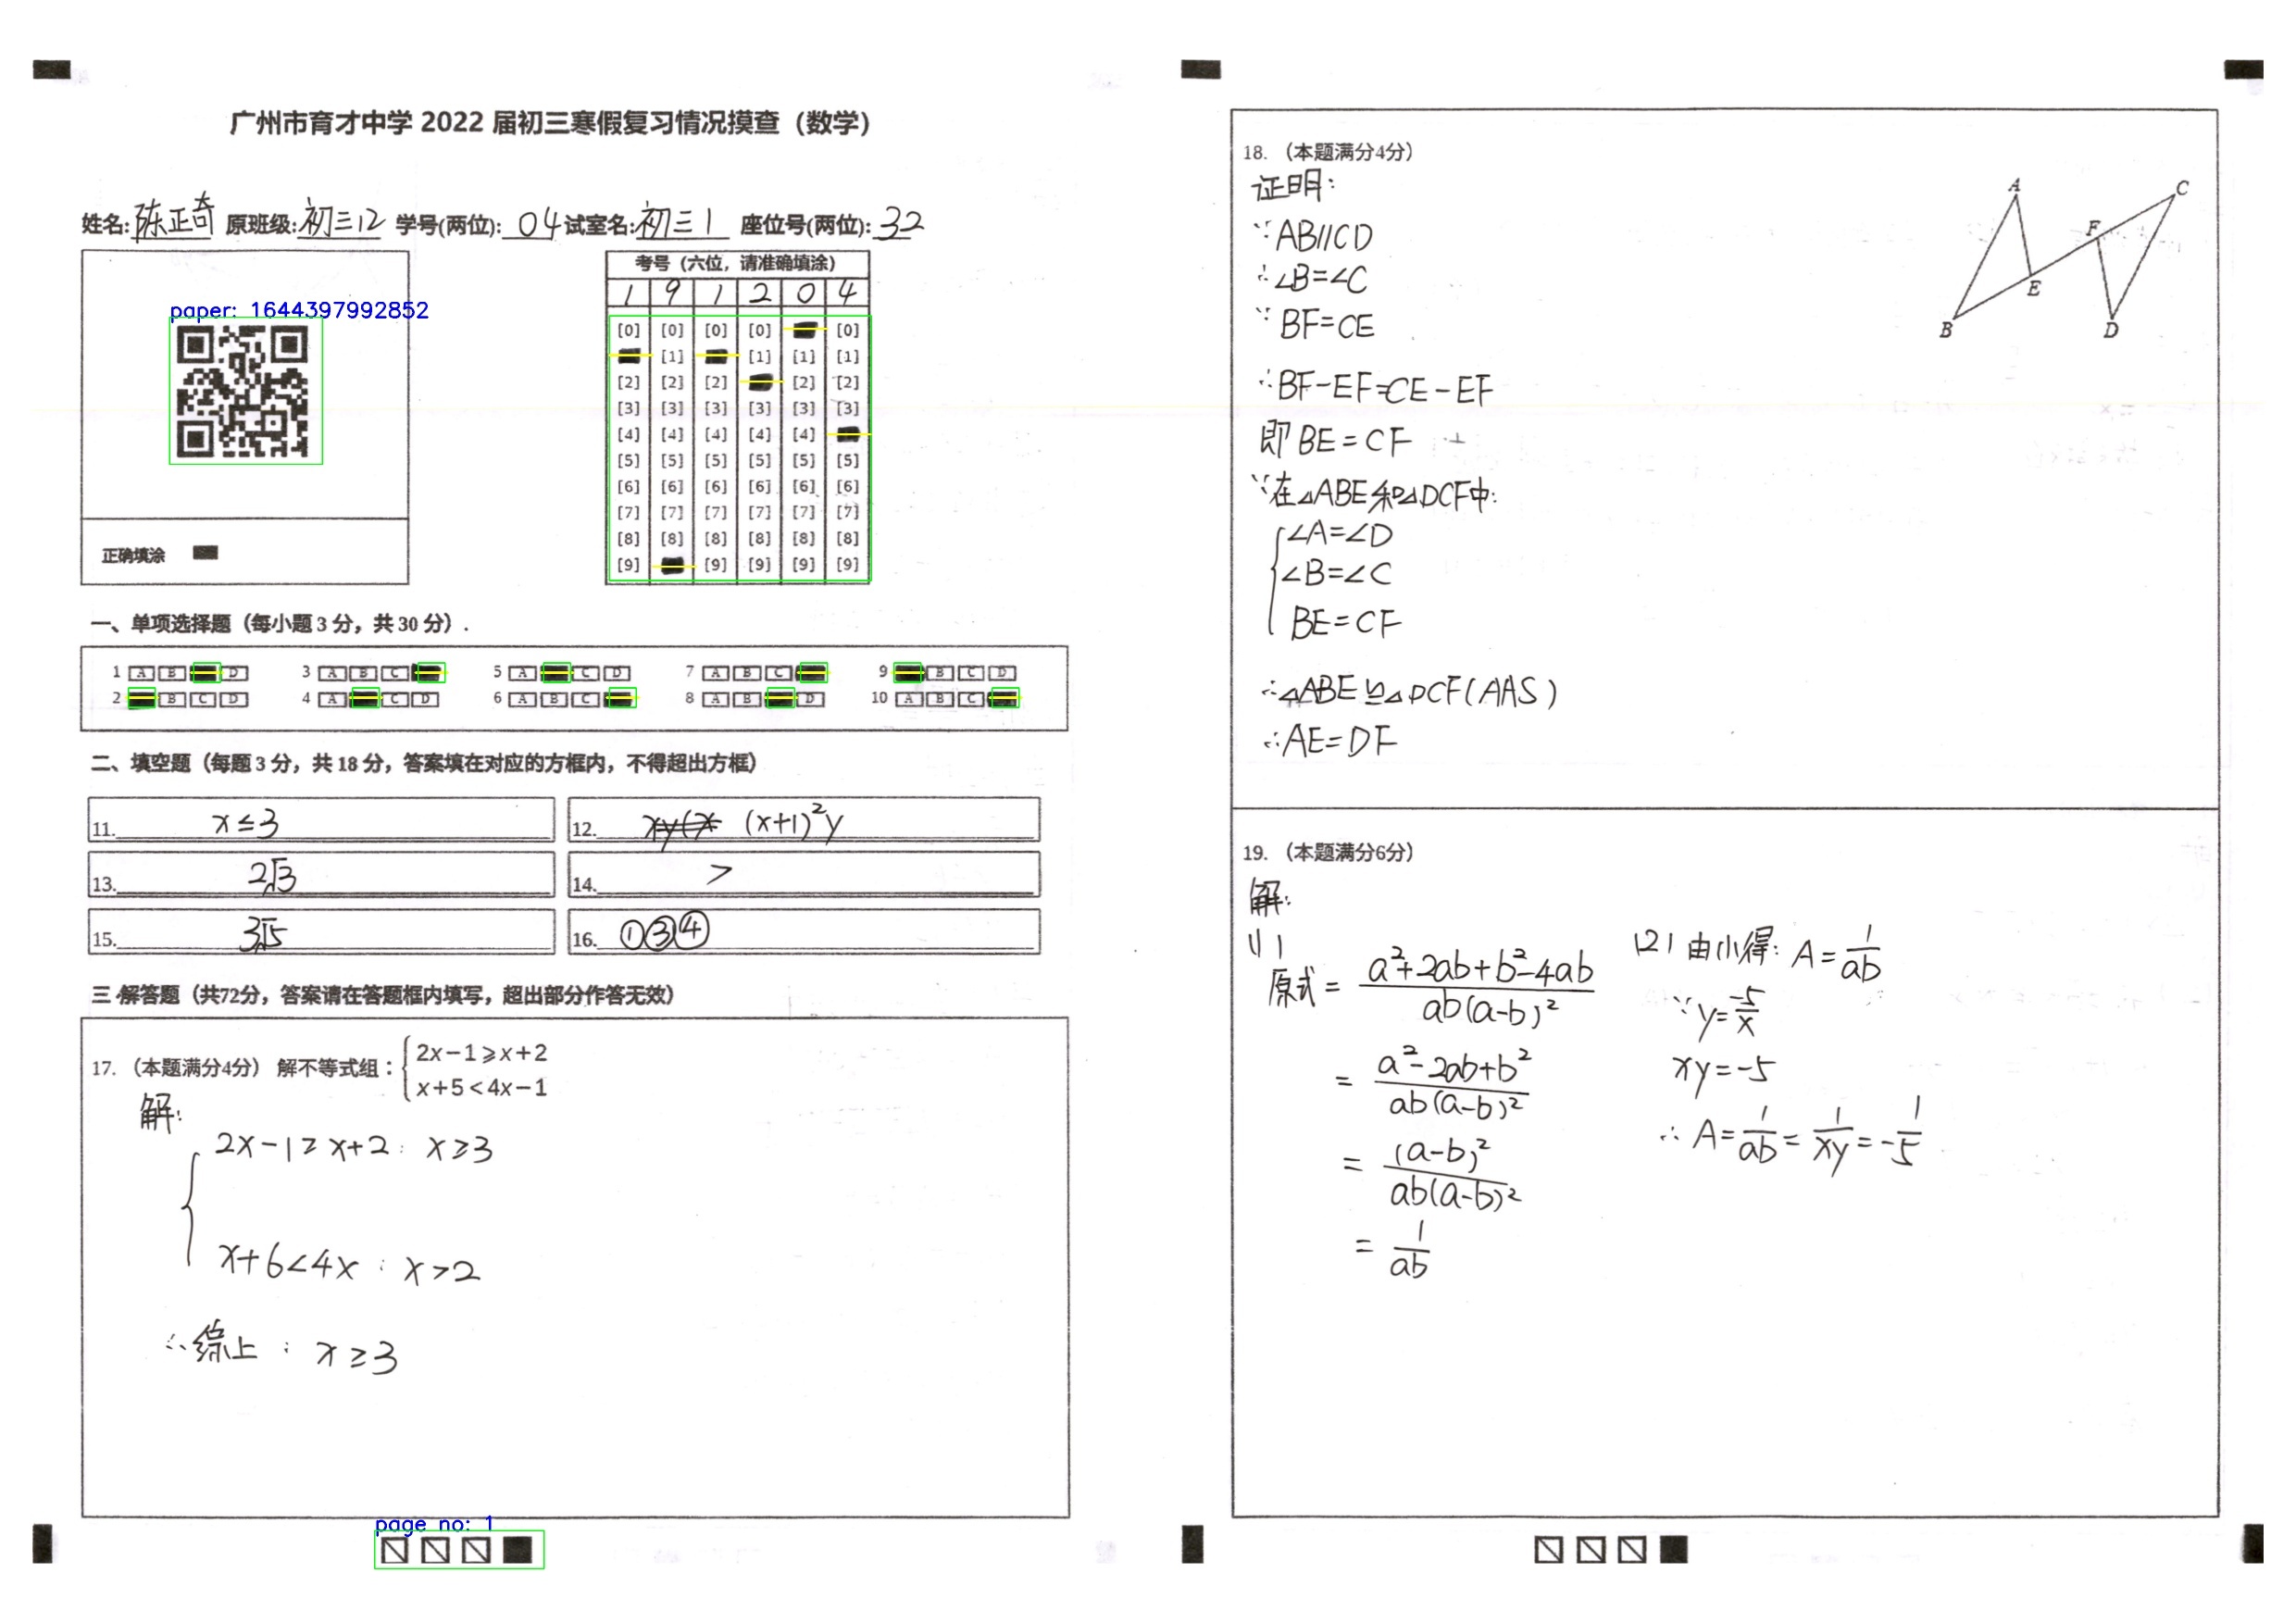 广州市育才中学 2022 届初三寒假复习情况摸查（数学）
姓名: 陈正奇 原班级: 初三12 学号(两位): 04 试室名: 初三1 座位号(两位): 32
考号（六位，请准确填涂）
1 9 1 2 0 4
paper: 1644397992852
[0] [0] [0] [0] [0]
[1] [1] [1] [1]
[2] [2] [2] [2] [2]
[3] [3] [3] [3] [3] [3]
[4] [4] [4] [4] [4]
[5] [5] [5] [5] [5] [5]
[6] [6] [6] [6] [6] [6]
[7] [7] [7] [7] [7] [7]
[8] [8] [8] [8] [8] [8]
[9] [9] [9] [9] [9]
正确填涂
一、单项选择题（每小题 3 分，共 30 分）.
1 A B D 3 A B C 5 A C D 7 A B C 9 B C D
2 B C D 4 A C D 6 A B C 8 A B D 10 A B C
二、填空题（每题 3 分，共 18 分，答案填在对应的方框内，不得超出方框）
11. x≤3
12. (x+1)²y
13. 2√3
14. >
15. 3√5
16. ①③④
三 解答题（共72分，答案请在答题框内填写，超出部分作答无效）
17. （本题满分4分） 解不等式组：{2x−1⩾x+2
x+5<4x−1
解:
2x-1≥x+2: x≥3
x+6<4x: x>2
∴综上: x≥3
page no: 1
18. （本题满分4分）
证明:
∵AB//CD
∴∠B=∠C
∵BF=CE
∴BF-EF=CE-EF
即BE=CF
∵在△ABE和△DCF中:
∠A=∠D
∠B=∠C
BE=CF
∴△ABE≌△DCF(AAS)
∴AE=DF
A
C
F
E
B
D
19. （本题满分6分）
解:
(1)
原式= (a²+2ab+b²-4ab)/(ab(a-b)²)
= (a²-2ab+b²)/(ab(a-b)²)
= (a-b)²/(ab(a-b)²)
= 1/ab
(2) 由(1)得: A=1/ab
∵y=-5/x
xy=-5
∴ A=1/ab=1/xy=-1/5